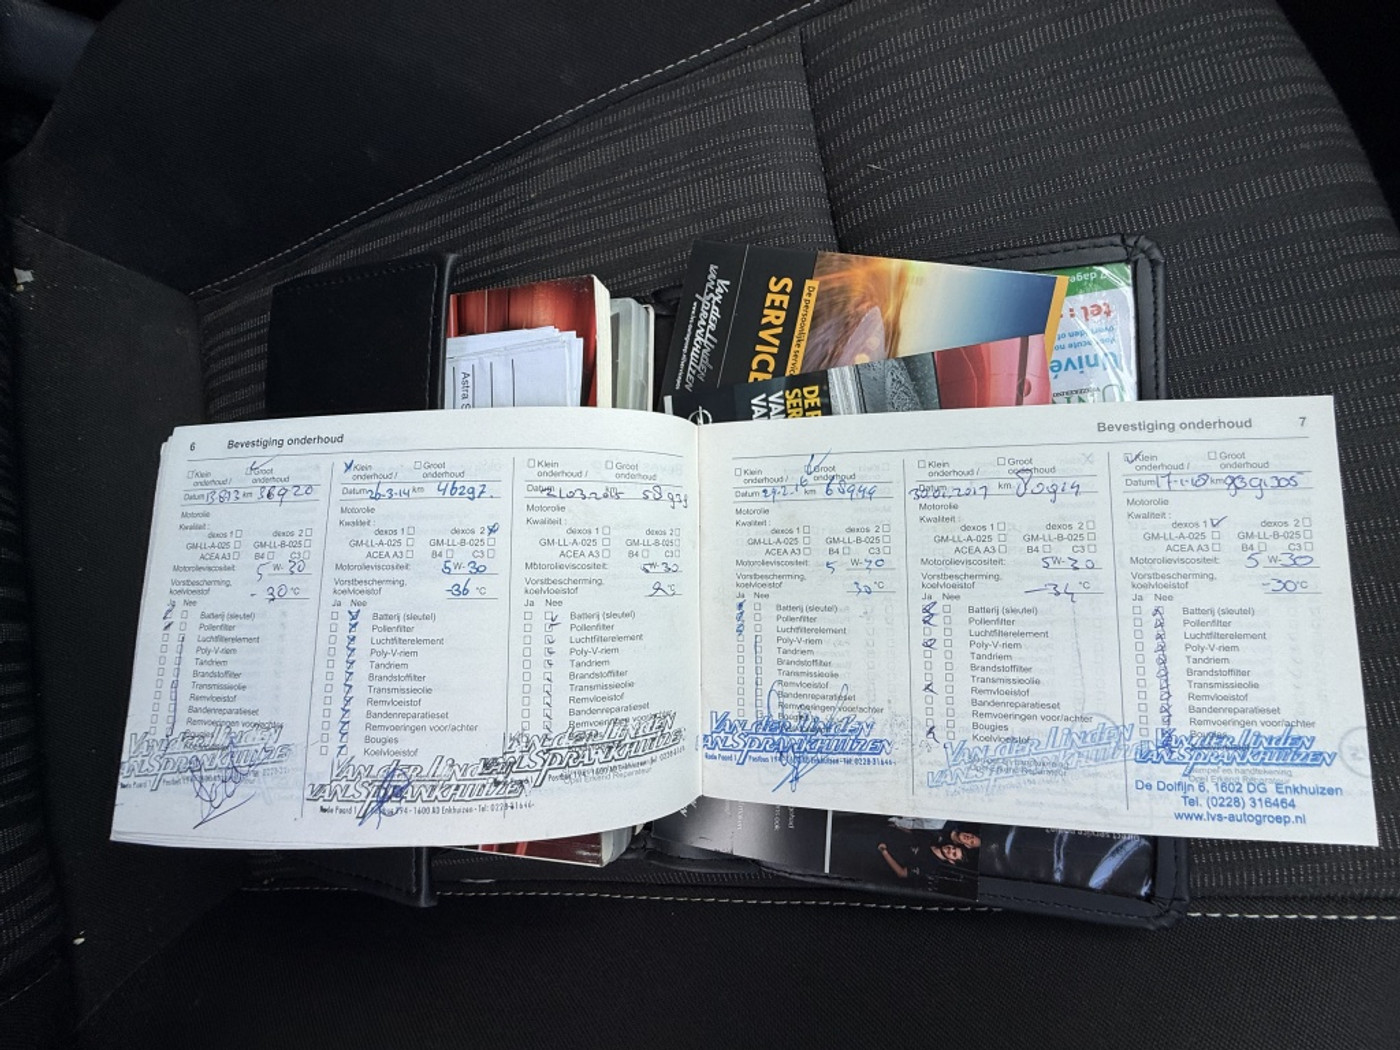 Van der Linden
van Sprankhuizen
SERVICE
De persoonlijke service
dagen
tel:
Univé
Astra
6 Bevestiging onderhoud
Klein onderhoud / Groot onderhoud
Datum 13-8-13 km 36920
Motorolie
Kwaliteit :
dexos 1 dexos 2
GM-LL-A-025 GM-LL-B-025
ACEA A3 B4 C3
Motorolieviscositeit: 5 W-30
Vorstbescherming,
koelvloeistof - 30 °C
Ja Nee
Batterij (sleutel)
Pollenfilter
Luchtfilterelement
Poly-V-riem
Tandriem
Brandstoffilter
Transmissieolie
Remvloeistof
Bandenreparatieset
Remvoeringen voor/achter
Bougies
Van der Linden
van Sprankhuizen
Klein onderhoud / Groot onderhoud
Datum 26-3-14 km 46297.
Motorolie
Kwaliteit :
dexos 1 dexos 2
GM-LL-A-025 GM-LL-B-025
ACEA A3 B4 C3
Motorolieviscositeit: 5W-30
Vorstbescherming,
koelvloeistof -36 °C
Ja Nee
Batterij (sleutel)
Pollenfilter
Luchtfilterelement
Poly-V-riem
Tandriem
Brandstoffilter
Transmissieolie
Remvloeistof
Bandenreparatieset
Remvoeringen voor/achter
Bougies
Koelvloeistof
Van der Linden
van Sprankhuizen
Rode Paard 1 - Postbus 194 - 1600 AD Enkhuizen - Tel: 0228-31646
Klein onderhoud / Groot onderhoud
Datum 21.03.2015 58939
Motorolie
Kwaliteit :
dexos 1 dexos 2
GM-LL-A-025 GM-LL-B-025
ACEA A3 B4 C3
Motorolieviscositeit: 5W-30
Vorstbescherming,
koelvloeistof °C
Ja Nee
Batterij (sleutel)
Pollenfilter
Luchtfilterelement
Poly-V-riem
Tandriem
Brandstoffilter
Transmissieolie
Remvloeistof
Bandenreparatieset
Remvoeringen voor/achter
Van der Linden
van Sprankhuizen
Bevestiging onderhoud 7
Klein onderhoud / Groot onderhoud
Datum km 68944
Motorolie
Kwaliteit :
dexos 1 dexos 2
GM-LL-A-025 GM-LL-B-025
ACEA A3 B4 C3
Motorolieviscositeit:
Vorstbescherming,
koelvloeistof 30 °C
Ja Nee
Batterij (sleutel)
Pollenfilter
Luchtfilterelement
Poly-V-riem
Tandriem
Brandstoffilter
Transmissieolie
Remvloeistof
Bandenreparatieset
Remvoeringen voor/achter
Bougies
Van der Linden
van Sprankhuizen
Klein onderhoud / Groot onderhoud
Datum 2017 km
Motorolie
Kwaliteit :
dexos 1 dexos 2
GM-LL-A-025 GM-LL-B-025
ACEA A3 B4 C3
Motorolieviscositeit: 5W-30
Vorstbescherming,
koelvloeistof -34 °C
Ja Nee
Batterij (sleutel)
Pollenfilter
Luchtfilterelement
Poly-V-riem
Tandriem
Brandstoffilter
Transmissieolie
Remvloeistof
Bandenreparatieset
Remvoeringen voor/achter
Bougies
Koelvloeistof
Van der Linden
van Sprankhuizen
Klein onderhoud / Groot onderhoud
Datum 17-1-18 km
Motorolie
Kwaliteit :
dexos 1 dexos 2
GM-LL-A-025 GM-LL-B-025
ACEA A3 B4 C3
Motorolieviscositeit: 5 W-30
Vorstbescherming,
koelvloeistof -30°C
Ja Nee
Batterij (sleutel)
Pollenfilter
Luchtfilterelement
Poly-V-riem
Tandriem
Brandstoffilter
Transmissieolie
Remvloeistof
Bandenreparatieset
Remvoeringen voor/achter
Bougies
Van der Linden
van Sprankhuizen
De Dolfijn 6, 1602 DG Enkhuizen
Tel. (0228) 316464
www.lvs-autogroep.nl